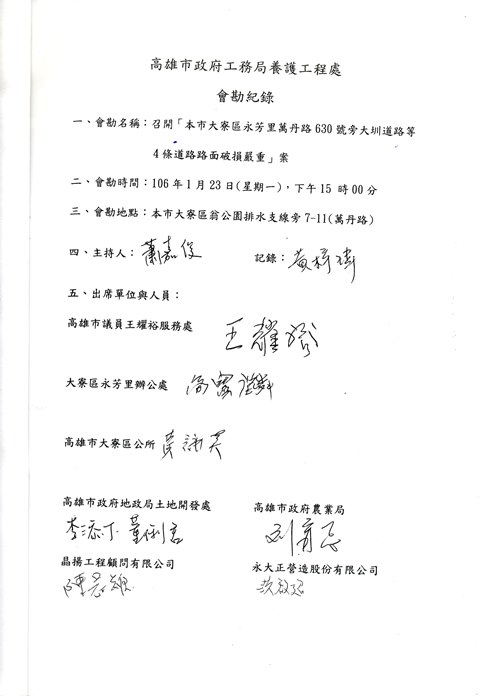 高雄市政府工務局養護工程處
會勘紀錄
一、會勘名稱：召開「本市大寮區永芳里萬丹路630號旁大圳道路等
4條道路路面破損嚴重」案
二、會勘時間：106年1月23日(星期一)，下午15時00分
三、會勘地點：本市大寮區翁公園排水支線旁7-11(萬丹路)
四、主持人：蕭嘉俊 記錄：黃梓瑋
五、出席單位與人員：
高雄市議員王耀裕服務處 王耀裕
大寮區永芳里辦公處
高雄市大寮區公所 黃詠芙
高雄市政府地政局土地開發處 高雄市政府農業局
晶揚工程顧問有限公司 永大正營造股份有限公司